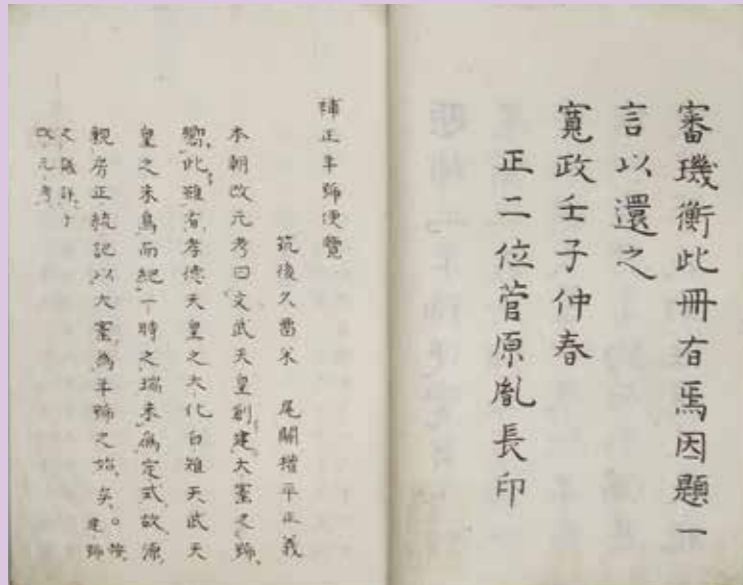 審璣衡此冊有焉因題一
言以還之
寛政壬子仲春
正二位菅原胤長印
補正年号便覧
筑後久留米 尾關権平正義
本朝改元考曰文武天皇創建大宝之号
此雖有孝徳天皇之大化白雉天武天
皇之朱鳥而紀一時之瑞未為定式故源
親房正統記以大宝為年号之始矣。按建号
之議詳于
改元考